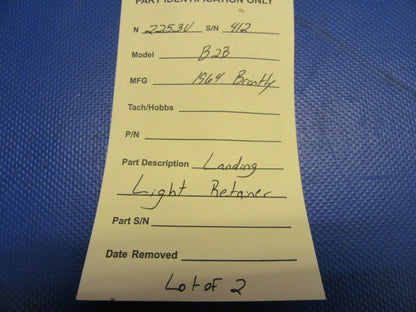 PART IDENTIFICATION ONLY
N 2253U S/N 412
Model B2B
MFG 1964 Brantly
Tach/Hobbs
P/N
Part Description Landing
Light Retainer
Part S/N
Date Removed
Lot of 2